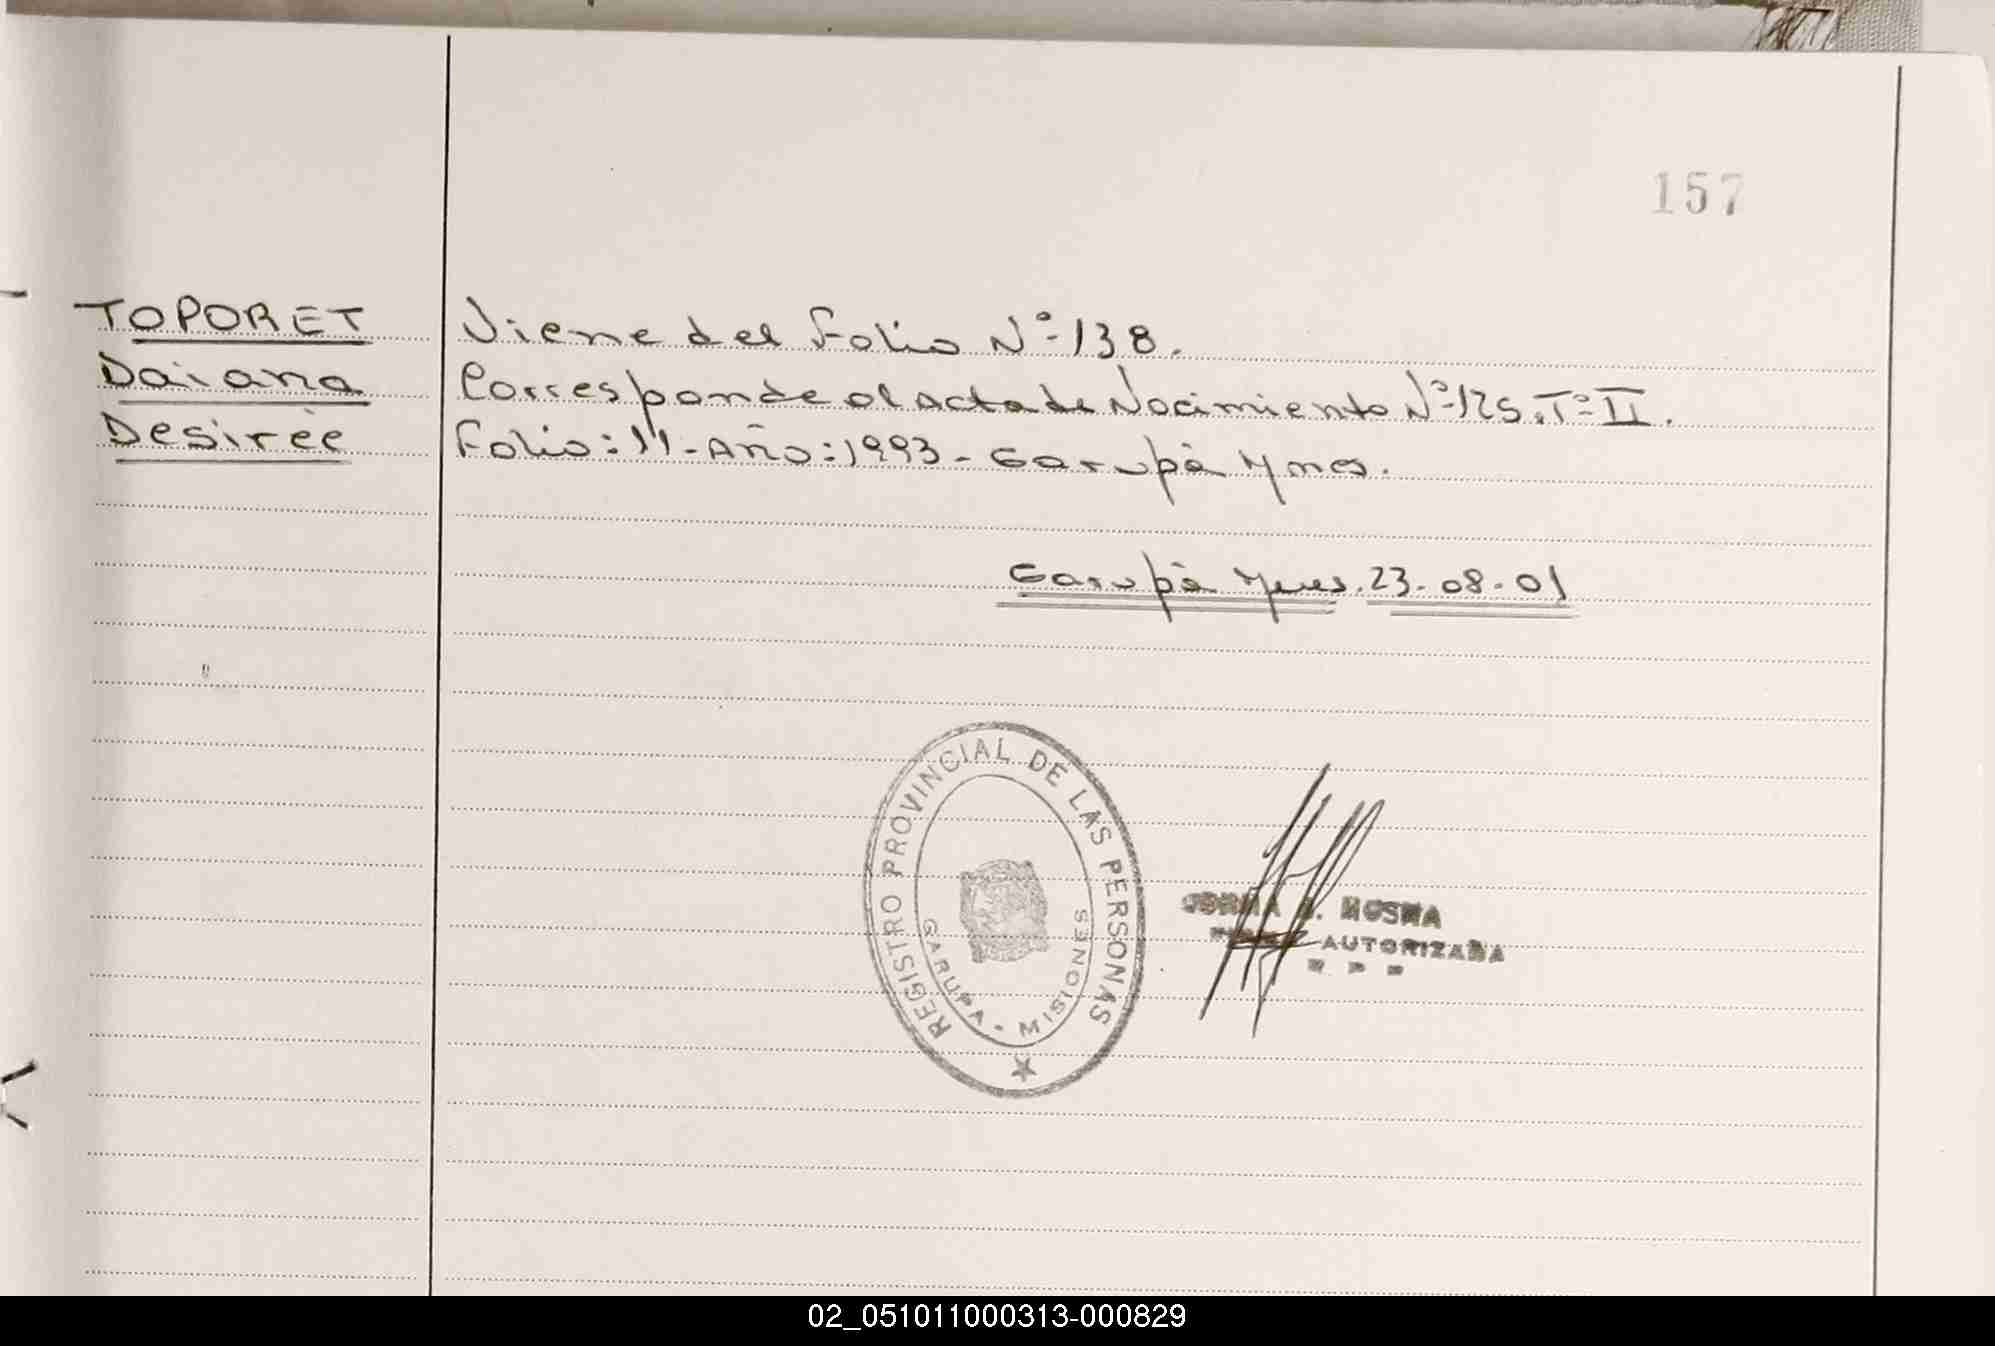 157
TOPORET
Daiana
Desirèe
Viene del Folio Nº-138.
Corresponde al acta de Nacimiento Nº-125. Tº-II.
Folio: 11-Año: 1993- Garupà Mnes.
Garupà Mnes. 23-08-01
REGISTRO PROVINCIAL DE LAS PERSONAS
GARUPA - MISIONES
MOSNA
AUTORIZADA
02_051011000313-000829